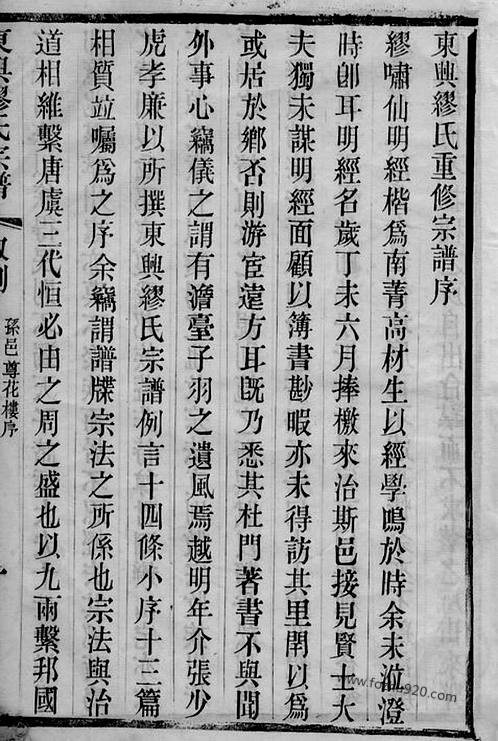 東興繆氏重修宗譜序
繆嘯仙明經楷爲南菁高材生以經學鳴於時余未涖澄
時卽耳明經名歲丁未六月捧檄來治斯邑接見賢士大
夫獨未謀明經面顧以簿書尠暇亦未得訪其里閈以爲
或居於鄉否則游宦遠方耳旣乃悉其杜門著書不與聞
外事心竊儀之謂有澹臺子羽之遺風焉越明年介張少
虎孝廉以所撰東興繆氏宗譜例言十四條小序十三篇
相質竝囑爲之序余竊謂譜牒宗法之所係也宗法與治
道相維繫唐虞三代恒必由之周之盛也以九兩繫邦國
東興繆氏宗譜
孫邑尊花樓序
www.foxhu920.com